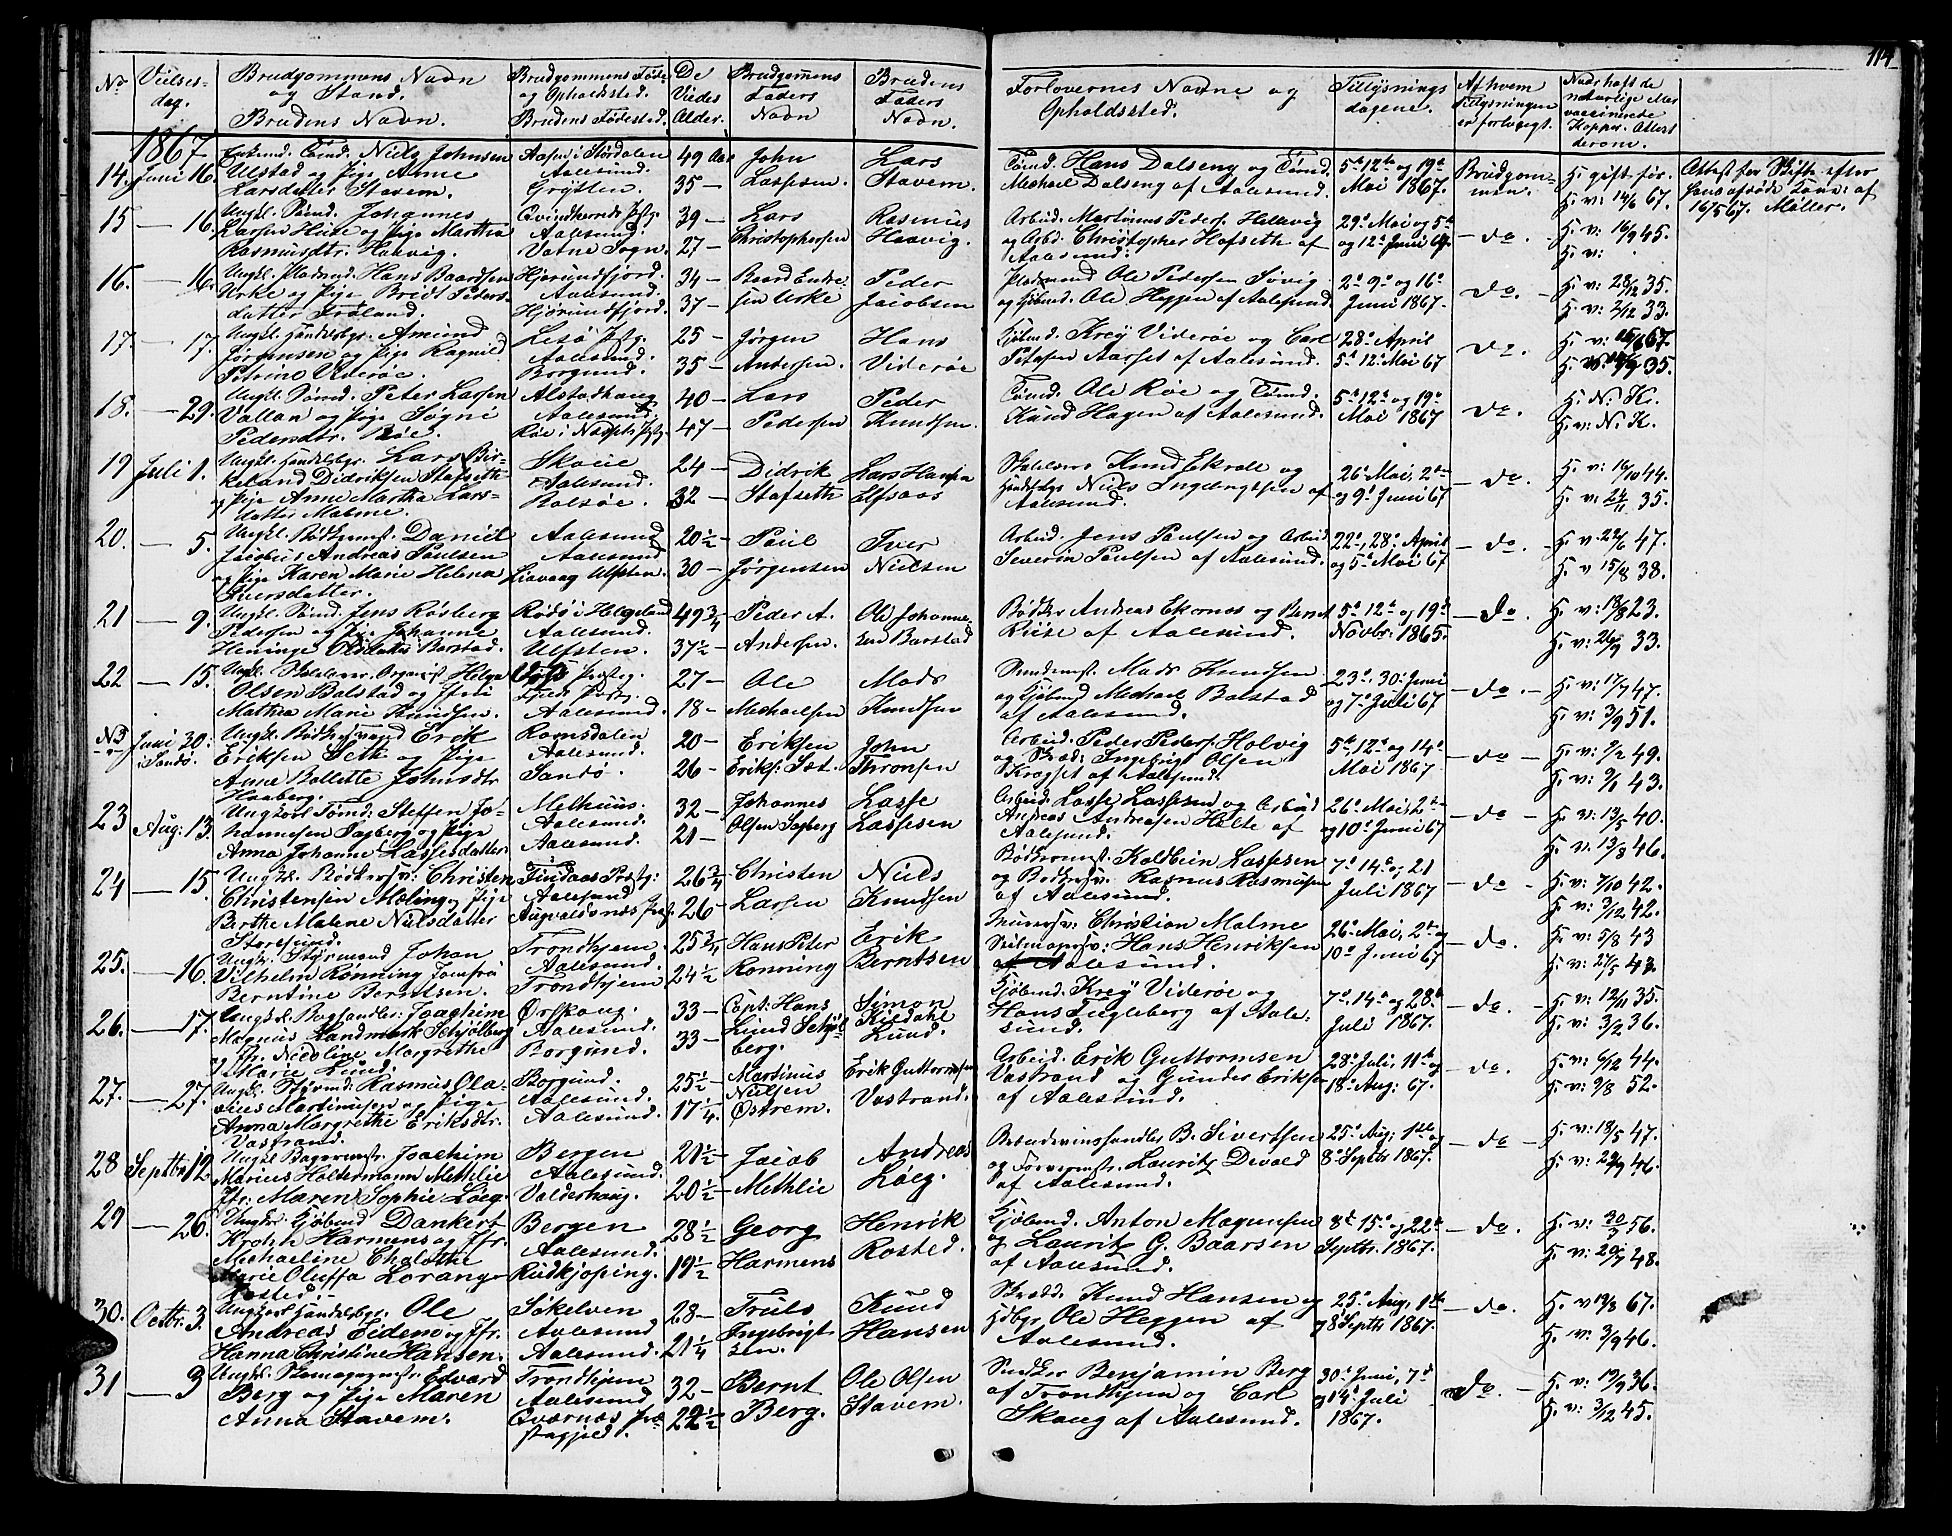 114
No Vielses- dag. Brudgommens Navn og Stand. Brudens Navn. Brudgommens Føde- og Opholdssted. Brudens Fødested. De Viedes Alder. Brudgommens Faders Navn Brudens Faders Navn. Forlovernes Navne og Opholdssted. Tillysnings dagene. Af hvem Tillysningen er forlangt.
1867
14. Juni 16. Enkemd. Tømd. Niels Johnsen Ulstad og Pige Anne Larsdatter Stavem. Aasen i Størdalen Aalesund. Grytten. 49 Aar 35 — John Lassesen. Lars Stavem. Tømd. Hans Dalseng og Tømd. Michael Dalseng af Aalesund. 5te 12te og 19de Mai 1867. Brudgom- men. H. gift før. H. v: 14/6 67. Attest for Skifte efter hans afdøde Kone: af 16/5 67. Møller.
15 — 16. Larsen og Pige Martha Rasmusdtr. Haavig. Aalesund. Vatne Sogn. 39 — 27 — Lars Christophersen Rasmus Haavig. Arbeid. Martinus Peders. Hellevig og Arbd. Christopher Hofseth af Aalesund. 29de Mai og 5te og 12te Juni 67. — do. H. v: 16/9 45. H. v:
16. — 16. Ungkl. Pladsmd. Hans Baardsen Urke og Pige Brith Peders- datter Frøland. Hjørundfjord. Aalesund. Hjørundfjord. 34 — 37 — Baard Endre- sen Urke Peder Jacobsen Pladsmand Ole Pedersen Søvig og Kjøbmd. Ole Heggen af Aalesund. 2de 9de og 16de Juni 1867. — do. — H. v: 28/12 35. H. v: 2/12 33.
17. — 17. Ungkl. Handelsbgr. Amund Jørgensen og Pige Ragnild Petrine Viderøe. Lesø Pstg. Aalesund. Borgund. 25 — 35 — Jørgen Andersen. Hans Viderøe Kjøbmd. Krey Viderøe og Carl Petersen Aarset af Aalesund. 28de April 5te 12te Mai 67 do. H. v: 15/6 67. 35.
18. — 29. Ungkl. Tømd. Peter Larsen Vallan og Pige Søgni Pedersdtr. Røe. Alstadhaug Aalesund. Røe i Næssets Pstg. 40 — 47 — Lars Pedersen Peder Knudsen. Tømd. Ole Røe og Tømd. Knud Hagen af Aalesund. 5te 12te og 19de Mai 1867 do. H. N. K. H. v: N. K.
19 Juli 1. Ungkl. Handelsbgr. Lars Bir- keland Didriksen Stafseth og Pige Anne Martha Lars- datter Malme. Skoue Aalesund. 24 — 32 — Didrik Stafseth Lars Hansen Elfsaas Knud Ekroll og Handelsbgr Niels Ingebrigtsen af Aalesund. 26de Mai, 2den og 9de Juni 67 — do. — H. v: 16/10 44. H. v: 24/11 35.
20. — 5. Ungkl. Bødkermst. Daniel Jacobus Andreas Paulsen og Pige Karen Marie Helena Iversdatter. Aalesund Aalesund Liavaag Ulfsten. 20½ 30 — Paul Jørgensen Iver Nielsen Arbeid. Jens Paulsen og Arbeid Severin Paulsen af Aalesund. 22de, 28de April og 5te Mai 67 — do. — H. v: 22/6 47. H. v 15/8 38.
21 — 9. Ungkl. Tømd. Jens Rosberg Pedersen og Pige Johanne Henninge Olsdatter Barstad. Rødø i Helgeland Aalesund. Ulfsten. 49¾ 37½ Peder A. Andersen. Ole Johanne- sen Barstad Bødker Andreas Ekornes og Bernt Riise af Aalesund. 5te 12te og 19de Novbr: 1865. — do H. v: 13/8 23. H. v: 26/9 33.
22 — 15. Organist Helge Olsen Balstad og Jfr. Mathea Marie Knudsen. Aalesund. 27 — 18 — Ole Michaelsen Mads Knudsen Mads Knudsen og Kjøbmd Michael Balstad af Aalesund. 23de, 30de Juni og 7de Juli 67 — do. — H. v: 17/7 47. H. v: 3/9 51.
NB Juni 30: i Sandø. Erik Eriksen Seth og Pige Anna Bollette Johnsdtr. Haaberg. Romsdalen Aalesund. Sandø. 20 — 26 — Eriksen Eriks: Sæt. John Thronsen Arbeid. Peder Peders. Holvig og Skræd: Ingebrigt Olsen Kragset af Aalesund. 5te 12te og 14de Mai 1867 — do — H. v: 7/2 49. H. v: 9/1 43.
23 Aug: 13. Ungkarl Tømd: Steffen Jo- hannesen Sagberg og Pige Anna Johanne Lassesdatter Melhuus. Aalesund. Aalesund. 32 — 21 — Johannes Olsen Sagberg Lasse Lassesen Arbeid. Lasse Lassesen og Arbeid Andreas Andreasen Helte af Aalesund. 26de Mai, 2den og 10de Juni 67 — do — H. v: 13/5 40. H. v. 13/8 46.
24 — 15. Ungkl. Bødkersv: Christen Christensen Mæling og Pige Berthe Malene Nielsdatter Storesund. Findaas Præstg: Aalesund Augvaldsnæs Pstg. 26¾ 26 — Christen Larsen Niels Knudsen Bødkermst. Koldbein Lassesen og Bødkersv. Rasmus Rasmusen af Aalesund. 7de 14de og 21 Juli 1867 — do — H. v: 7/10 42. H. v: 3/12 42.
25. — 16. Ungkl. Styrmand Johan Vilhelm Rønning Jomfru Berntine Berntsen. Trondhjem. Aalesund. Trondhjem 25¾ 24½ Hans Peter Rønning Erik Berntsen Christian Malme Hans Henriksen af Aalesund. 26de Mai, 2den og 10de Juni 67 — do. H. v: 5/8 43 H. v. 27/5 43.
26. — 17. Joachim Magnus Landmark Schjølberg og Jfr. Nicoline Margrethe Marie Lund. Ørskoug. Aalesund. Borgund. 33 — 33 — Capt: Hans Lund Schjøl- berg. Simon Kildahl Lund. Kjøbmd. Krey Viderøe og Hans Fugleberg af Aale- sund. 7de, 14de og 28de Juli 1867. — do. — H. v: 12/11 35. H. v: 3/2 36.
27. — 27. Ungkl. Styrmd: Rasmus Ola- vius Martinusen og Pige Anna Margrethe Eriksdtr. Vastrand. Borgund. Aalesund. Aalesund. 25½ 17¼ Martinus Nielsen Østrem. Erik Guttormsen Vastrand. Arbeid. Erik Guttormsen Vastrand og Gunder Eriksen af Aalesund. 28de Juli, 11te og 18de Aug: 67. — do. H. v: 6/12 44. H. v: 9/8 52.
28 Septbr 12 Ungkl Bagermstr. Joachim Marius Holdermann Methlie Jfr. Maren Sophie Løeg. Bergen Aalesund. Valderhaug. 21½ 20½ Jacob Methlie Andreas Løeg. Brændevinshandler B. Sivertsen og Farvermstr. Lauritz Devold af Aalesund. 25de Aug; 1ste og 8de Septbr 1867. — do — H. v: 18/5 47. H. v: 29/9 46.
29 — 26. Ungkl. Kjøbmd Dankert Krohn Harmens og Jfr. Michaeline Chalotte Marie Oluffa Lorang Rosted. Bergen Aalesund. Rudkjøping. 28½ 19½ Georg Harmens Henrik Rosted. Kjøbmd. Anton Magnusen og Lauritz G. Baarsen af Aalesund. 8de 15de og 22de Septbr. 1867. — do. H. v: 30/3 56. H. v: 20/7 48.
30. Octbr: 3. Ungkarl Handelsbgr. Ole Andreas Eidem og Jfr. Hanna Christine Hansen. Søkelven Aalesund Aalesund. 28 — 21¼ Truls Ingebrigt- sen. Knud Hansen Skrædd. Knud Hansen og Hdbgr Ole Heggen af Aalesund. 25de Aug, 1ste og 8 Septbr 1867. — do. H. v 19/8 67. H. v: 3/9 46.
31 — 3 Edvard Berg og Pige Maren Anna Stavem. Trondhjem Aalesund Qværnæs Præ- stegjeld. 32 — 22½ Bernt Berg. Ole Olsen Stavem. Snedker Benjamin Berg af Trondhjem og Carl Skoug af Aalesund. 30de Juni, 7de og 14de Juli 1867. do. — H. v: 19/9 36. H. v: 3/12 45.